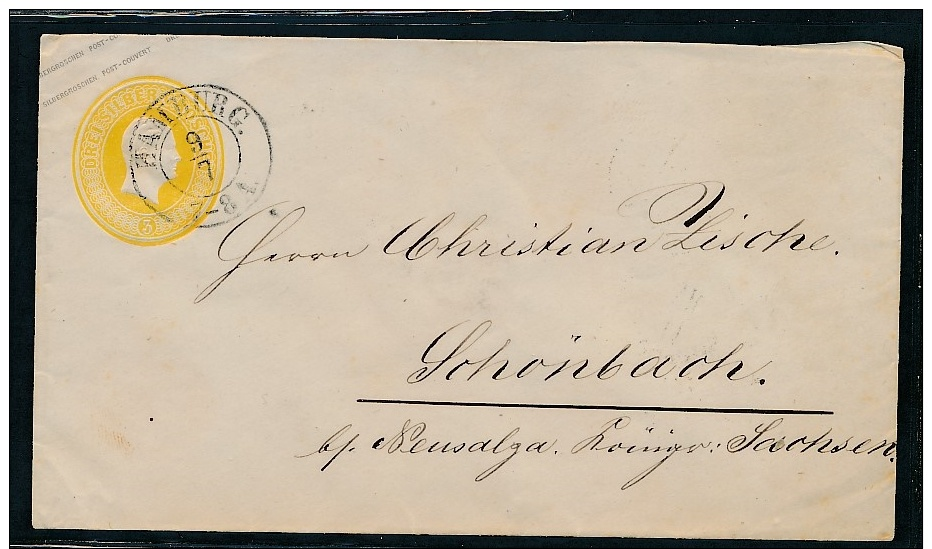 SILBERGROSCHEN POST-COUVERT
SILBERGROSCHEN POST-COUVERT
DREI SILBER GROSCH
3
HAMBURG.
9/7
7-8 A.
Herrn Christian Lische.
Schönbach.
b/. Neusalza. Königr: Sachsen.